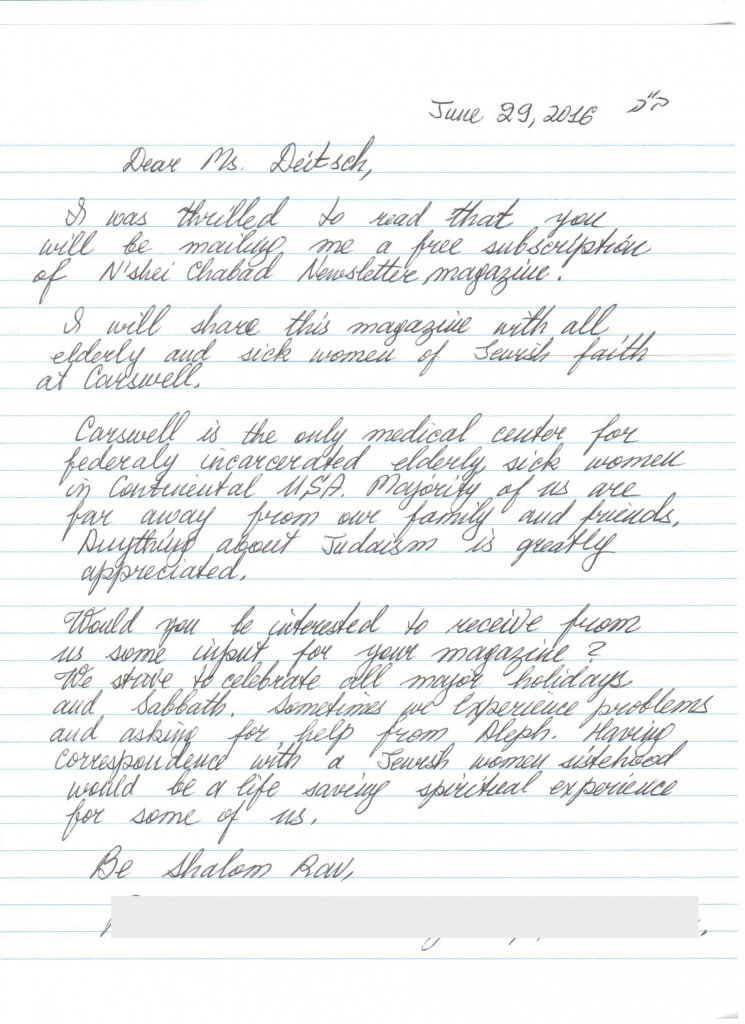 June 29, 2016 ב"ה
Dear Ms. Deitsch,
I was thrilled to read that you
will be mailing me a free subscription
of N'shei Chabad Newsletter magazine.
I will share this magazine with all
elderly and sick women of Jewish faith
at Carswell.
Carswell is the only medical center for
federaly incarcerated elderly, sick women
in Continental USA. Majority of us are
far away from our family and friends.
Anything about Judaism is greatly
appreciated.
Would you be interested to receive from
us some input for your magazine?
We strive to celebrate all major holidays
and Sabbath. Sometimes we experience problems
and asking for help from Aleph. Having
correspondence with a Jewish women sisterhood
would be a life saving spiritical experience
for some of us.
Be Shalom Rav,